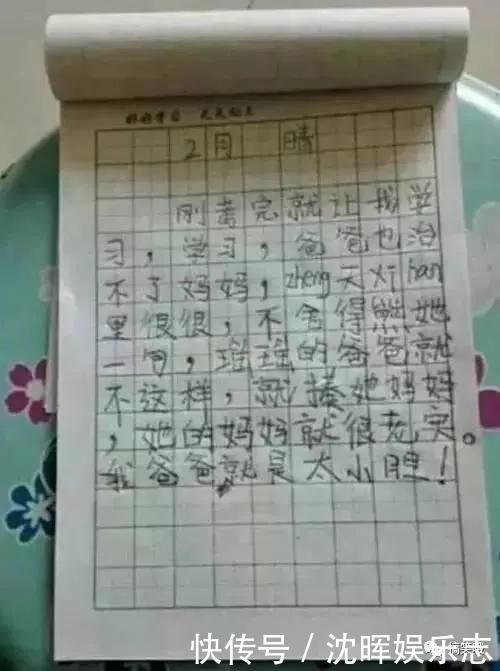 好好学习 天天向上
2月 晴
刚考完就让我学
习，学习，爸爸也治
不了妈妈，zheng天对han
里很很，不舍得熊她
一句，瑶瑶的爸爸就
不这样，就揍她妈妈
，她的妈妈就很老实。
我爸爸就是太小胆！
快传号／沈晖娱乐志